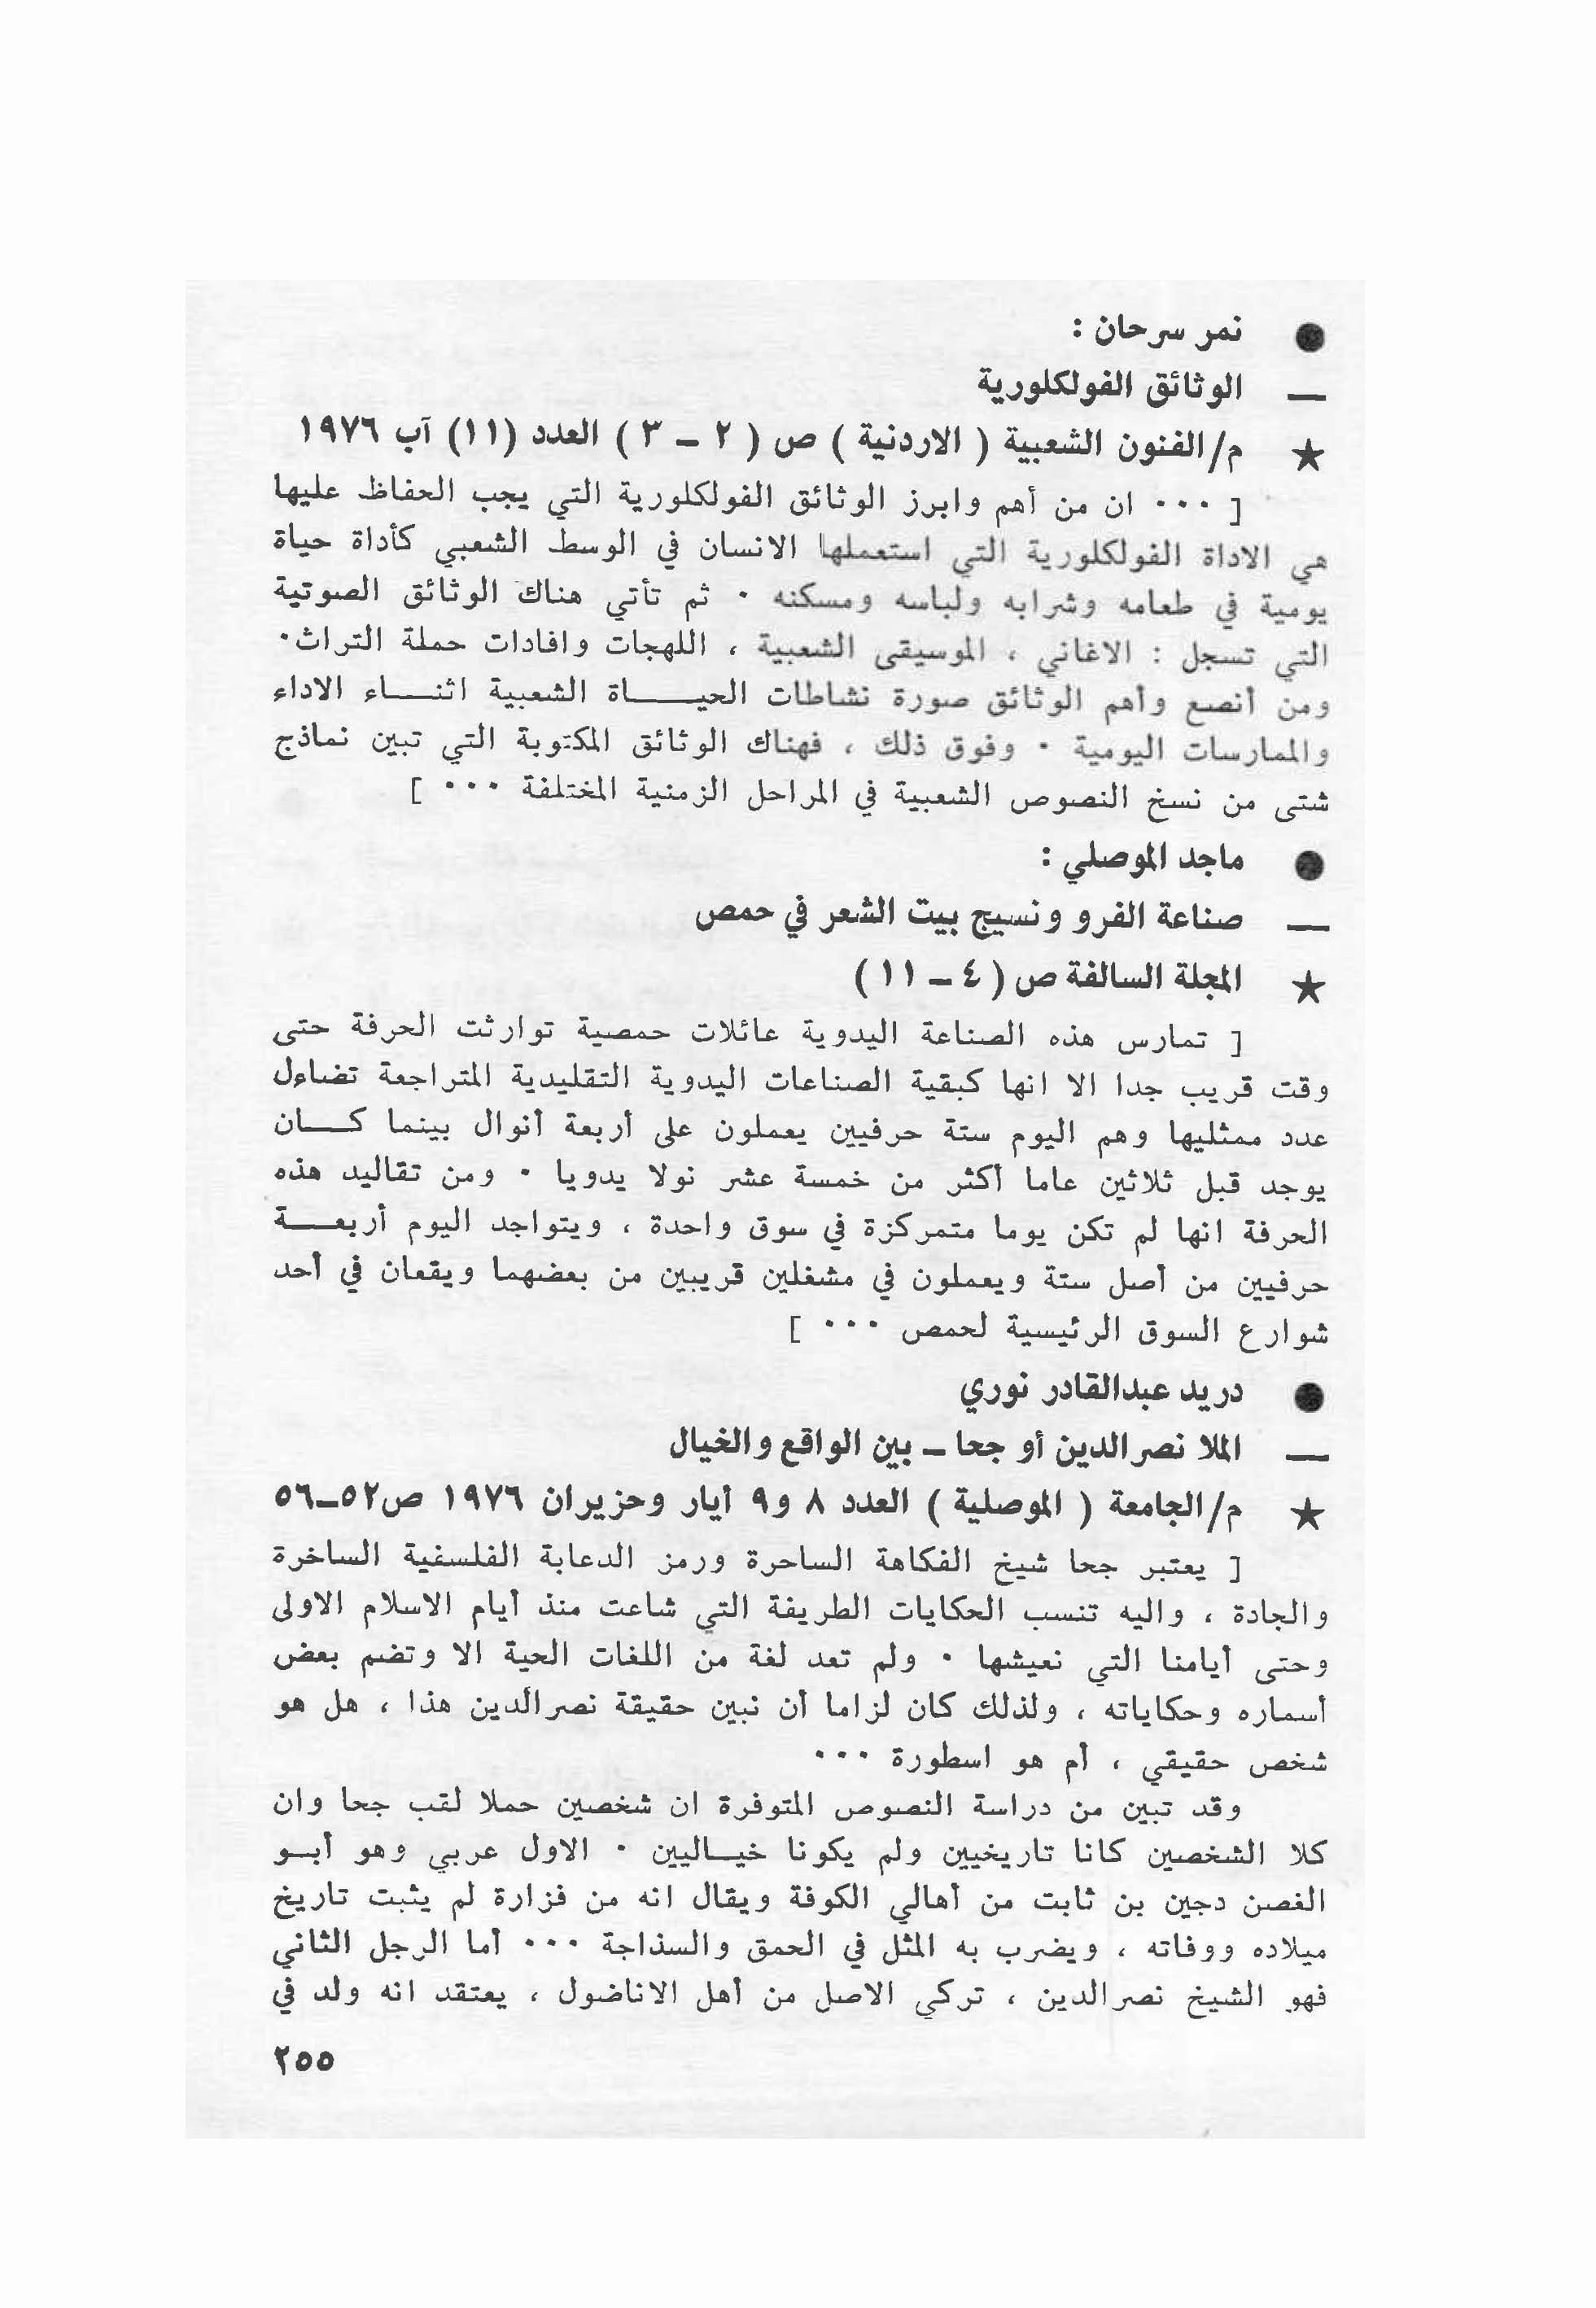 ● نمر سرحان :
— الوثائق الفولكلورية
★ م/الفنون الشعبية ( الاردنية ) ص ( ٢ – ٣ ) العدد (١١) آب ١٩٧٦
[ ٠٠٠ ان من أهم وابرز الوثائق الفولكلورية التي يجب الحفاظ عليها
هي الاداة الفولكلورية التي استعملها الانسان في الوسط الشعبي كأداة حياة
يومية في طعامه وشرابه ولباسه ومسكنه ٠ ثم تأتي هناك الوثائق الصوتية
التي تسجل : الاغاني ، الموسيقى الشعبية ، اللهجات وافادات حملة التراث٠
ومن أنصع وأهم الوثائق صورة نشاطات الحيـــاة الشعبية اثنـــاء الاداء
والممارسات اليومية ٠ وفوق ذلك ، فهناك الوثائق المكتوبة التي تبين نماذج
شتى من نسخ النصوص الشعبية في المراحل الزمنية المختلفة ٠٠٠ ]
● ماجد الموصلي :
— صناعة الفرو ونسيج بيت الشعر في حمص
★ المجلة السالفة ص ( ٤ – ١١ )
[ تمارس هذه الصناعة اليدوية عائلات حمصية توارثت الحرفة حتى
وقت قريب جدا الا انها كبقية الصناعات اليدوية التقليدية المتراجعة تضاءل
عدد ممثليها وهم اليوم ستة حرفيين يعملون على أربعة أنوال بينما كـــان
يوجد قبل ثلاثين عاما أكثر من خمسة عشر نولا يدويا ٠ ومن تقاليد هذه
الحرفة انها لم تكن يوما متمركزة في سوق واحدة ، ويتواجد اليوم أربعـــة
حرفيين من أصل ستة ويعملون في مشغلين قريبين من بعضهما ويقعان في أحد
شوارع السوق الرئيسية لحمص ٠٠٠ ]
● دريد عبدالقادر نوري
— الملا نصرالدين أو جحا – بين الواقع والخيال
★ م/الجامعة ( الموصلية ) العدد ٨ و٩ أيار وحزيران ١٩٧٦ ص٥٢–٥٦
[ يعتبر جحا شيخ الفكاهة الساحرة ورمز الدعابة الفلسفية الساخرة
والجادة ، واليه تنسب الحكايات الطريفة التي شاعت منذ أيام الاسلام الاولى
وحتى أيامنا التي نعيشها ٠ ولم تعد لغة من اللغات الحية الا وتضم بعض
أسماره وحكاياته ، ولذلك كان لزاما أن نبين حقيقة نصرالدين هذا ، هل هو
شخص حقيقي ، أم هو اسطورة ٠٠٠
وقد تبين من دراسة النصوص المتوفرة ان شخصين حملا لقب جحا وان
كلا الشخصين كانا تاريخيين ولم يكونا خيـاليين ٠ الاول عربي وهو أبـو
الغصن دجين بن ثابت من أهالي الكوفة ويقال انه من فزارة لم يثبت تاريخ
ميلاده ووفاته ، ويضرب به المثل في الحمق والسذاجة ٠٠٠ أما الرجل الثاني
فهو الشيخ نصرالدين ، تركي الاصل من أهل الاناضول ، يعتقد انه ولد في
٢٥٥